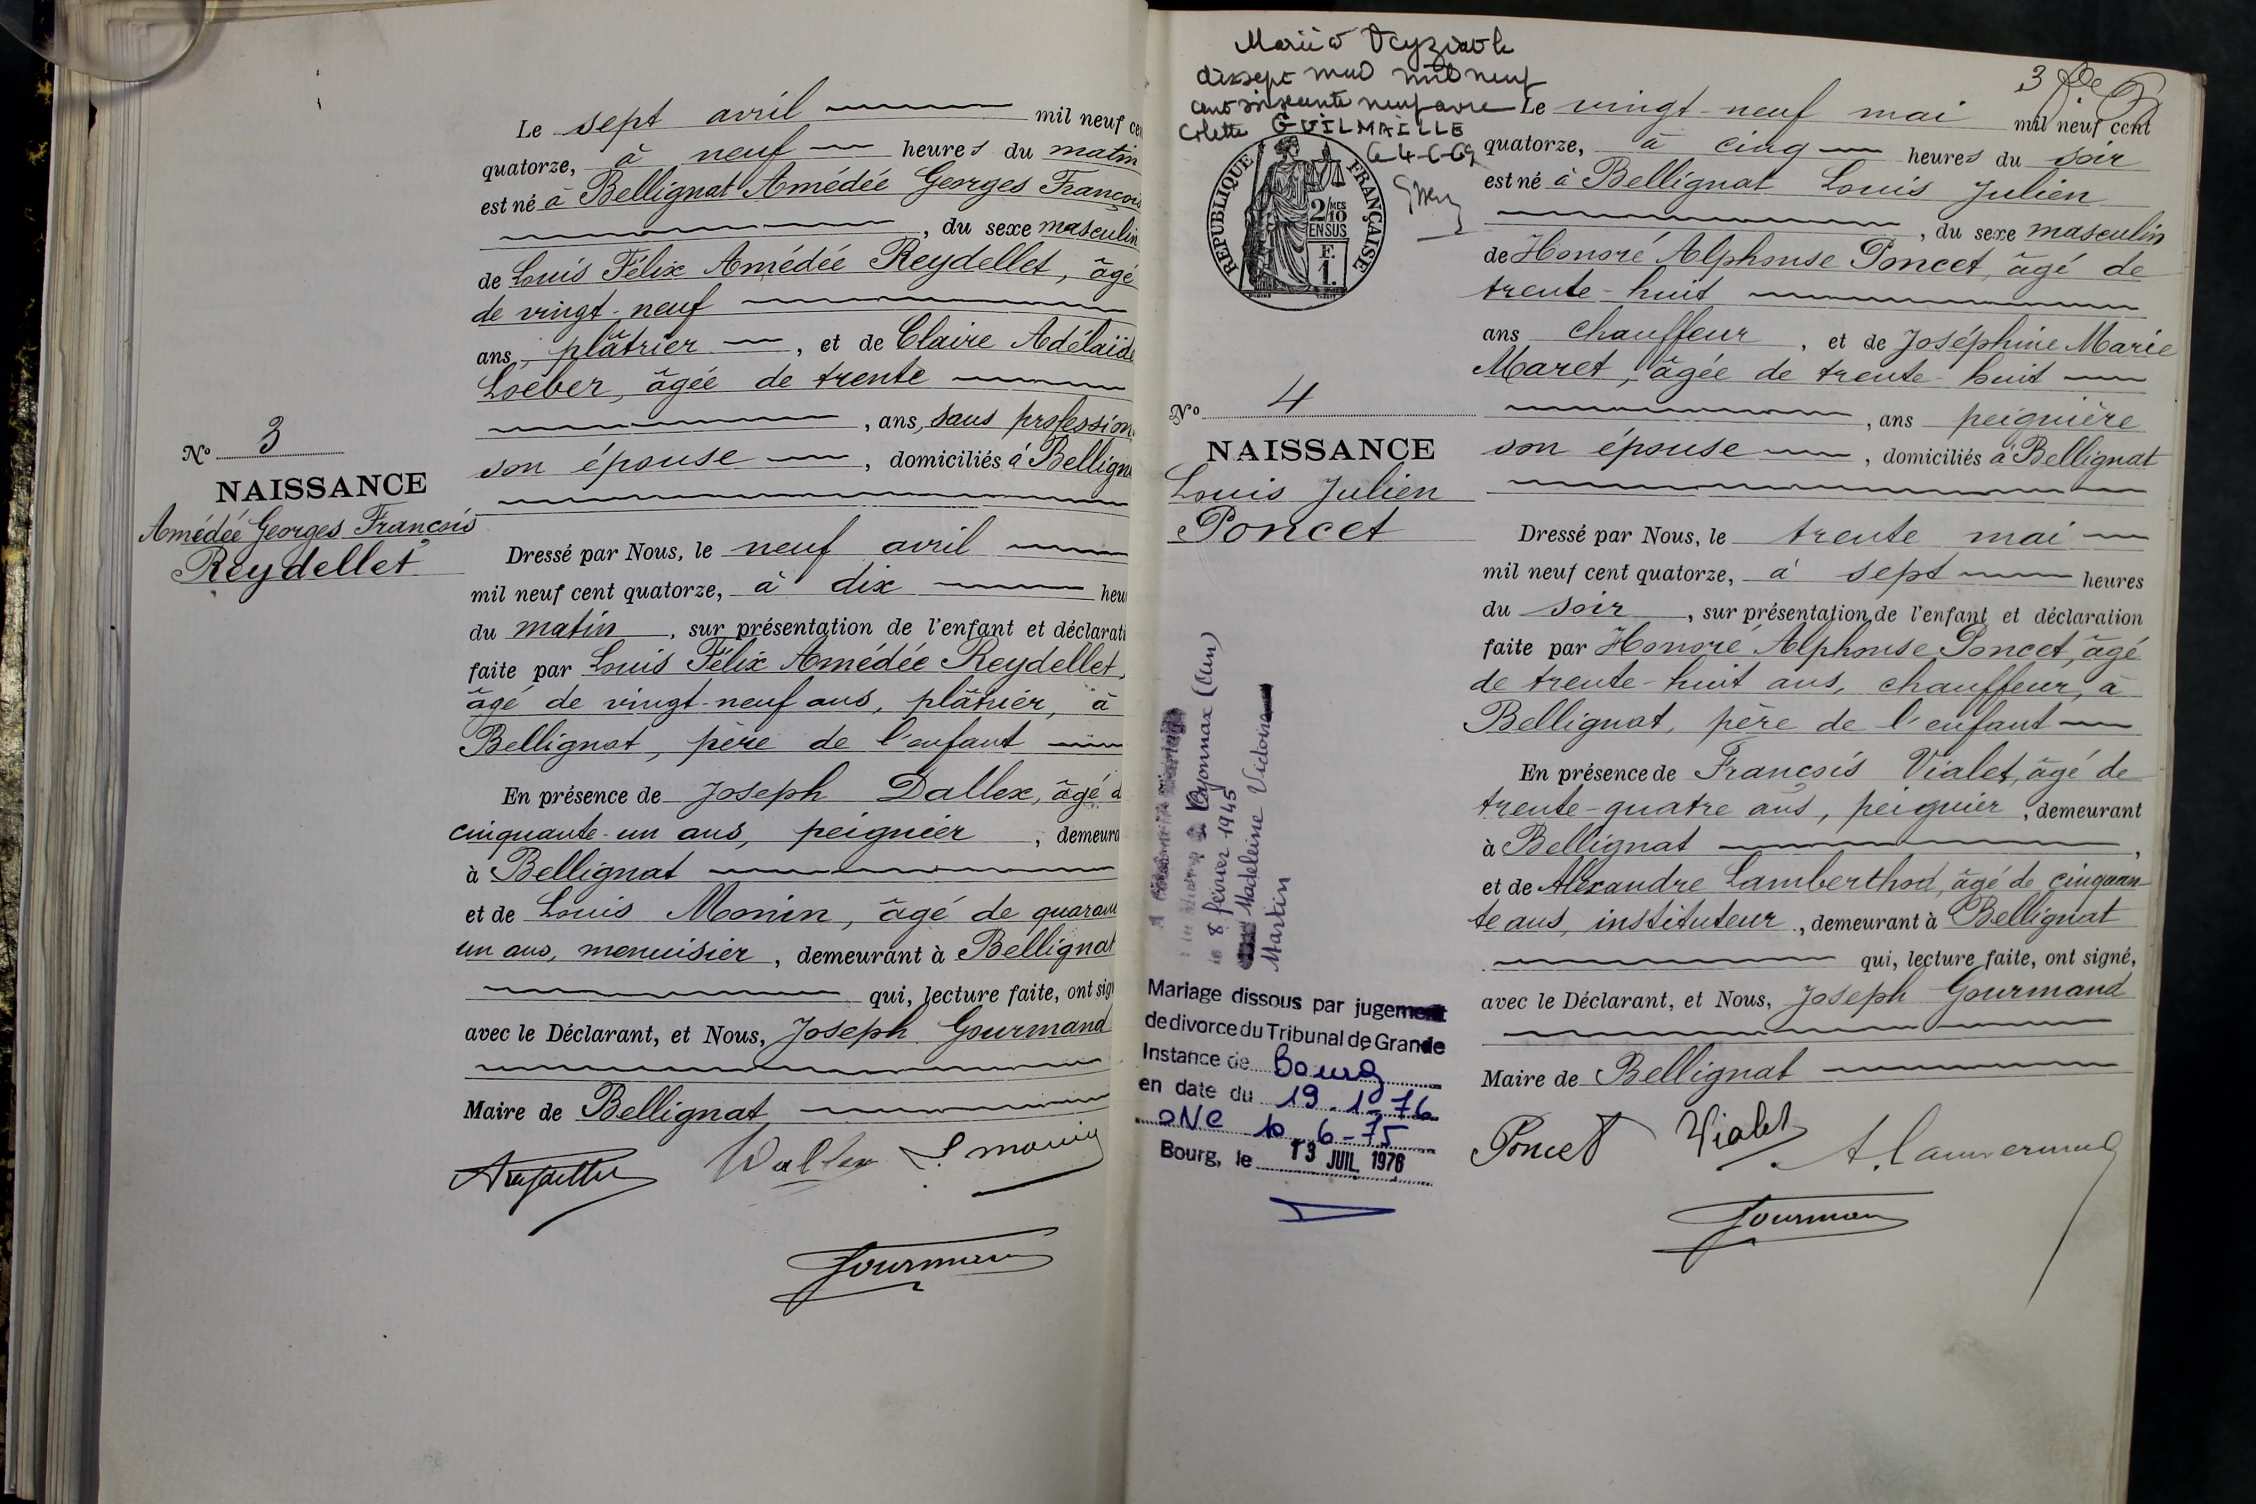 Le sept avril mil neuf ce
quatorze, à neuf heures du matin
est né à Bellignat Amédée Georges François
, du sexe masculin
de Louis Félix Amédée Reydellet, âgé
de vingt-neuf
ans, plâtrier, et de Claire Adélaïde
Loeber, âgée de trente
, ans, sans profession
son épouse, domiciliés à Bellign
No 3
NAISSANCE
Amédée Georges François
Reydellet
Dressé par Nous, le neuf avril
mil neuf cent quatorze, à dix heu
du matin, sur présentation de l'enfant et déclarati
faite par Louis Félix Amédée Reydellet,
âgé de vingt-neuf ans, plâtrier, à
Bellignat, père de l'enfant
En présence de Joseph Dallex, âgé d
cinquante-un ans, peignier, demeura
à Bellignat
et de Louis Monin, âgé de quaran
un ans, menuisier, demeurant à Bellignat
qui, lecture faite, ont sig
avec le Déclarant, et Nous, Joseph Gourmand
Maire de Bellignat
Dallex L Monin
Gourmand
Marié à Veyziat le
dix sept mai mil neuf
cent soixante neuf avec
Colette GUILMAILLE
Le 4-6-69
RÉPUBLIQUE FRANÇAISE
2/10 MES
EN SUS
F.
1.
No 4
NAISSANCE
Louis Julien
Poncet
Oyonnax (Ain)
le 8 février 1945
Madeleine Victoire
Martin
Mariage dissous par jugement
de divorce du Tribunal de Grande
Instance de Bourg
en date du 19-1-76
ONC 10-6-75
Bourg, le 13 JUIL. 1976
Le vingt-neuf mai mil neuf cent
quatorze, à cinq heures du soir
est né à Bellignat Louis Julien
, du sexe masculin
de Honoré Alphonse Poncet, âgé de
trente-huit
ans chauffeur, et de Joséphine Marie
Maret, âgée de trente-huit
, ans peignière
son épouse, domiciliés à Bellignat
Dressé par Nous, le trente mai
mil neuf cent quatorze, à sept heures
du soir, sur présentation de l'enfant et déclaration
faite par Honoré Alphonse Poncet, âgé
de trente-huit ans, chauffeur, à
Bellignat, père de l'enfant
En présence de François Vialet, âgé de
trente-quatre ans, peignier, demeurant
à Bellignat,
et de Alexandre Lamberthod, âgé de cinquan-
te ans, instituteur, demeurant à Bellignat
qui, lecture faite, ont signé,
avec le Déclarant, et Nous, Joseph Gourmand
Maire de Bellignat
Poncet Vialet
Gourmand